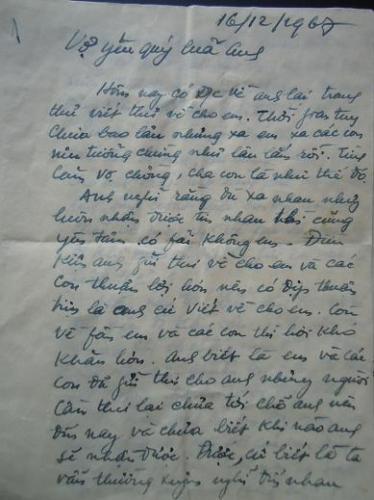 16/12/1967
Vợ yêu quý của ang
Hôm nay có dịp về ang lại trang
thủ viết thư về cho em. Thời gian tuy
chưa bao lâu nhưng xa em xa các con
nên tưởng chừng như lâu lắm rồi. Tình
cảm vợ chồng, cha con là như thế đó.
Ang nghĩ rằng dù xa nhau nhưng
luôn nhận được tin nhau thì cũng
yên tâm có fải không em. Điều
kiện ang gửi thư về cho em và các
con thuận lợi hơn nên có dịp thuận
tiện là ang cứ viết về cho em. Còn
về fần em và các con thì hơi khó
khăn hơn. Ang biết là em và các
con đã gửi thư cho ang nhưng người
cầm thư lại chưa tới chỗ ang nên
đến nay và chưa biết khi nào ang
sẽ nhận được. Được, cứ biết là ta
vẫn thường xuyên nghĩ đến nhau